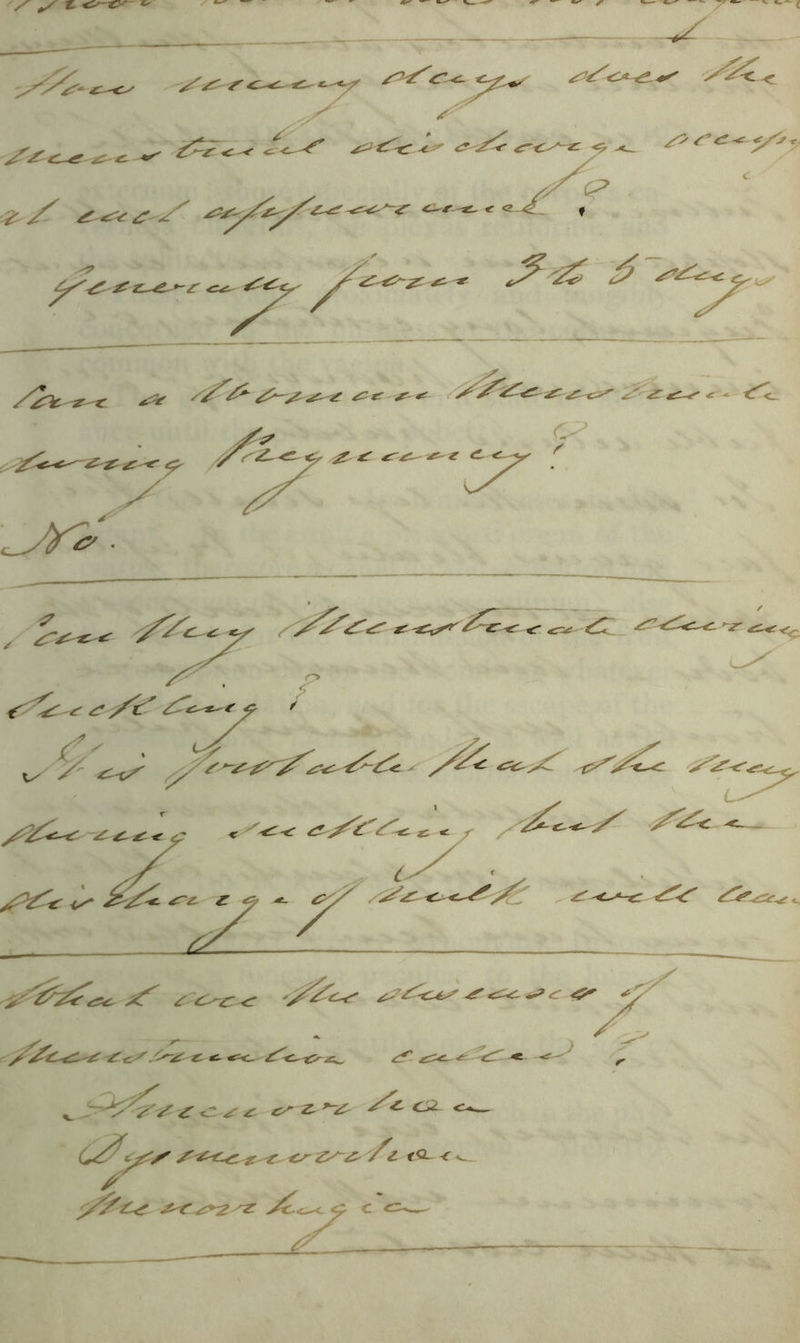 How many days does the
menstrual discharge occupy
at each appearance?
generally from 3 to 5 days
Can a Woman Menstruate
during Pregnancy?
No.
Can they Menstruate during
Suckling?
It is probable that she may
during suckling but the
discharge of milk will
What are the diseases of
Menstruation called?
Amenorrhoea
Dysmenorrhoea
Menorrhagia